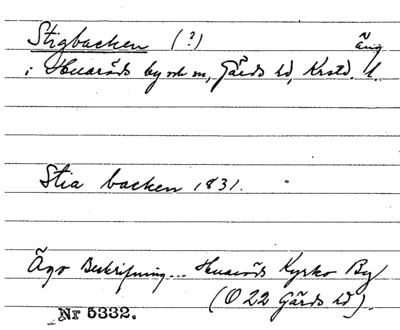 Stigbacken (?) äng
i Huaröds by och sn, Gärds hd, Krstd. l.
Stia backen 1831.
Ägo Beskrifning... Huaröds Kyrko By
(O 22 Gärds hd).
Nr 5332.